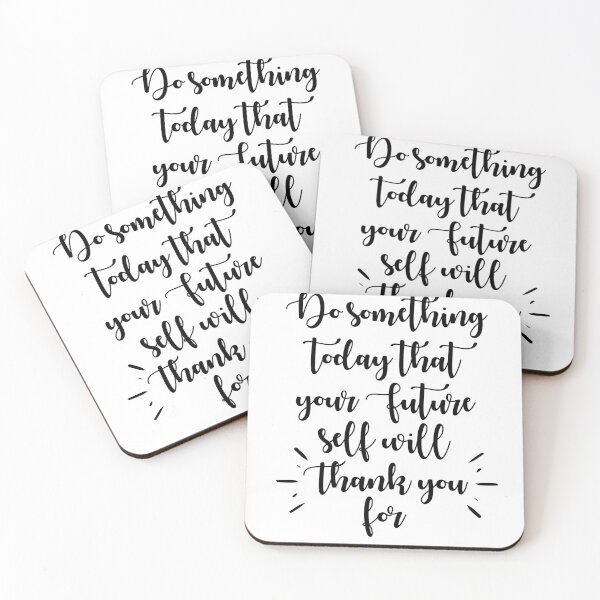 Do something
today that
your future
Do something
today that
your future
self will
Do something
today that
your future
self will
thank
for
Do something
today that
your future
self will
thank you
for